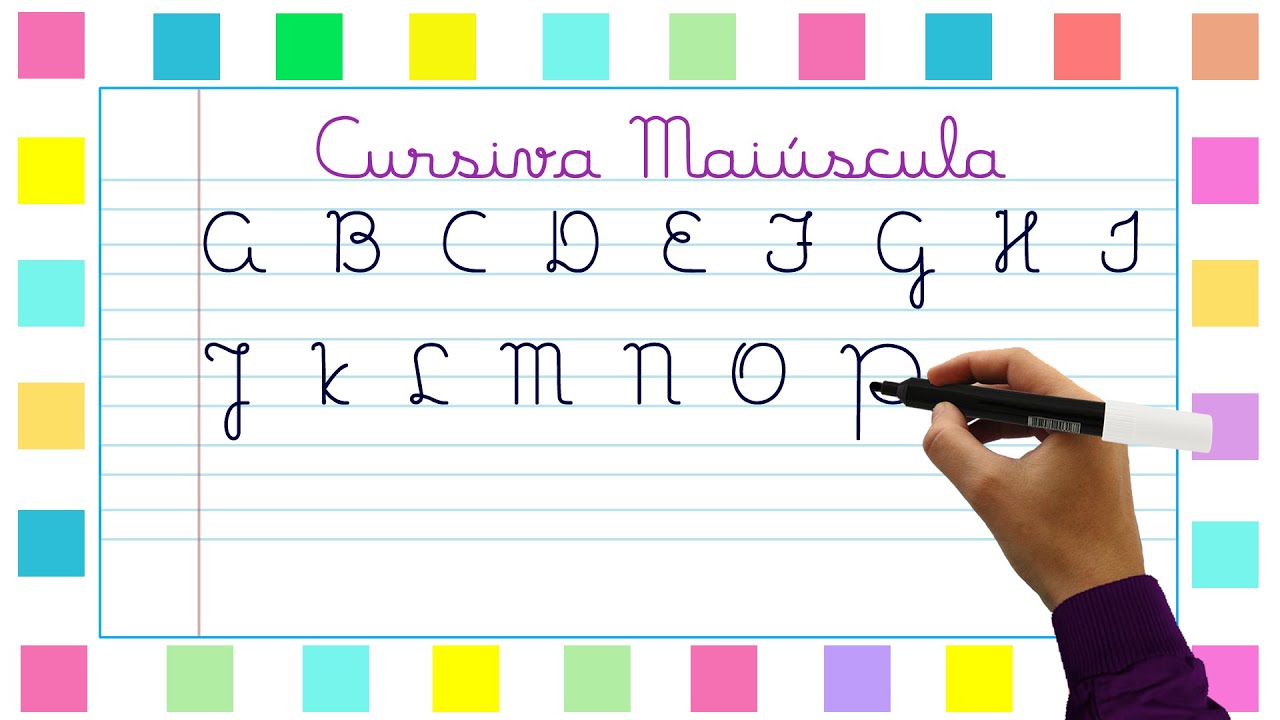 Cursiva Maiúscula
A B C D E F G H I
J K L M N O P